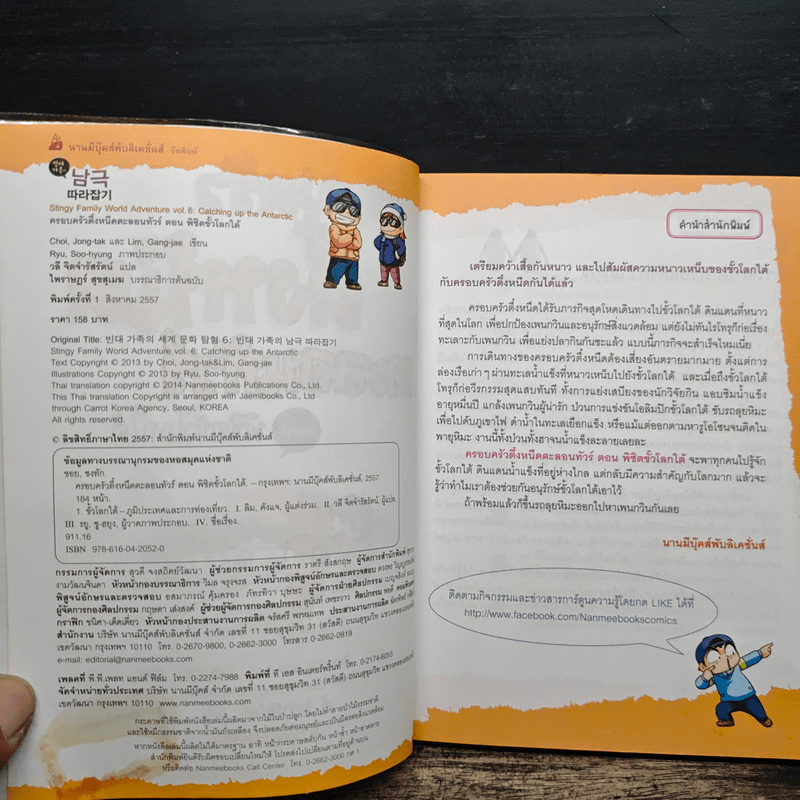 นานมีบุ๊คส์พับลิเคชั่นส์ จัดพิมพ์
빈대 가족의
남극
따라잡기
Stingy Family World Adventure vol. 6: Catching up the Antarctic
ครอบครัวตึ๋งหนืดตะลอนทัวร์ ตอน พิชิตขั้วโลกใต้
Choi, Jong-tak และ Lim, Gang-jae เขียน
Ryu, Soo-hyung ภาพประกอบ
วลี จิตจำรัสรัตน์ แปล
ไพรานฎร์ สุขสุเมฆ บรรณาธิการต้นฉบับ
พิมพ์ครั้งที่ 1 สิงหาคม 2557
ราคา 158 บาท
Original Title: 빈대 가족의 세계 문화 탐험 6: 빈대 가족의 남극 따라잡기
Stingy Family World Adventure vol. 6: Catching up the Antarctic
Text Copyright © 2013 by Choi, Jong-tak&Lim, Gang-jae
Illustrations Copyright © 2013 by Ryu, Soo-hyung
Thai translation copyright © 2014 Nanmeebooks Publications Co., Ltd.
This Thai translation Copyright is arranged with Jaemibooks Co., Ltd
through Carrot Korea Agency, Seoul, KOREA
All rights reserved.
© ลิขสิทธิ์ภาษาไทย 2557: สำนักพิมพ์นานมีบุ๊คส์พับลิเคชั่นส์
ข้อมูลทางบรรณานุกรมของหอสมุดแห่งชาติ
ชอย, ชงทัก.
ครอบครัวตึ๋งหนืดตะลอนทัวร์ ตอน พิชิตขั้วโลกใต้. – กรุงเทพฯ: นานมีบุ๊คส์พับลิเคชั่นส์, 2557.
184 หน้า.
1. ขั้วโลกใต้ – ภูมิประเทศและการท่องเที่ยว. I. ลิม, คังแจ, ผู้แต่งร่วม. II. วลี จิตจำรัสรัตน์, ผู้แปล.
III. รยู, ซู-ฮยุง, ผู้วาดภาพประกอบ. IV. ชื่อเรื่อง.
911.16
ISBN 978-616-04-2052-0
กรรมการผู้จัดการ สุวดี จงสถิตย์วัฒนา ผู้ช่วยกรรมการผู้จัดการ ราตรี สังสกฤษ ผู้จัดการสำนักพิมพ์
งามวัฒนจินดา หัวหน้ากองบรรณาธิการ วิมล จรุงจรส หัวหน้ากองพิสูจน์อักษรและตรวจสอบ
พิสูจน์อักษรและตรวจสอบ อสมาภรณ์ คุ้มครอง ภัทรทิวา บุษษะ ผู้จัดการฝ่ายศิลปกรรม
ผู้จัดการกองศิลปกรรม กฤษดา เส่งสงค์ ผู้ช่วยผู้จัดการกองศิลปกรรม สุนันท์ เพชรวาว ศิลปกรรม
กราฟิก ชนิดา-เด็ดเดี่ยว หัวหน้ากองประสานงานการผลิต จรัสศรี พรหมเทพ ประสานงานการผลิต
สำนักงาน บริษัท นานมีบุ๊คส์พับลิเคชั่นส์ จำกัด เลขที่ 11 ซอยสุขุมวิท 31 (สวัสดี) ถนนสุขุมวิท แขวงคลองเตยเหนือ
เขตวัฒนา กรุงเทพฯ 10110 โทร. 0-2670-9800, 0-2662-3000 โทรสาร 0-2662-0919
e-mail: editorial@nanmeebooks.com
เพลตที่ พี.พี.เพลท แอนด์ ฟิล์ม โทร. 0-2274-7988 พิมพ์ที่ ที เอส อินเตอร์พริ้นท์ โทร. 0-2174-6055
จัดจำหน่ายทั่วประเทศ บริษัท นานมีบุ๊คส์ จำกัด เลขที่ 11 ซอยสุขุมวิท 31 (สวัสดี) ถนนสุขุมวิท แขวงคลองเตยเหนือ
เขตวัฒนา กรุงเทพฯ 10110 www.nanmeebooks.com
กระดาษที่ใช้พิมพ์หนังสือเล่มนี้ผลิตมาจากไม้ในป่าปลูก โดยไม่ทำลายป่าไม้ธรรมชาติ
และใช้หมึกธรรมชาติจากน้ำมันถั่วเหลือง จึงปลอดภัยต่อมนุษย์และเป็นมิตรต่อสิ่งแวดล้อม
หากหนังสือเล่มนี้ผลิตไม่ได้มาตรฐาน อาทิ หน้ากระดาษสลับกัน หน้าซ้ำ หน้าขาดหาย
สำนักพิมพ์ยินดีรับผิดชอบเปลี่ยนใหม่ให้ โปรดส่งไปเปลี่ยนตามที่อยู่ด้านบน
หรือติดต่อ Nanmeebooks Call Center โทร. 0-2662-3000 กด 1
คำนำสำนักพิมพ์
เตรียมคว้าเสื้อกันหนาว และไปสัมผัสความหนาวเหน็บของขั้วโลกใต้
กับครอบครัวตึ๋งหนืดกันได้แล้ว
ครอบครัวตึ๋งหนืดได้รับภารกิจสุดโหดเดินทางไปขั้วโลกใต้ ดินแดนที่หนาว
ที่สุดในโลก เพื่อปกป้องเพนกวินและอนุรักษ์สิ่งแวดล้อม แต่ยังไม่ทันไรโทรุก็ก่อเรื่อง
ทะเลาะกับเพนกวิน เพื่อแย่งปลากินกันซะแล้ว แบบนี้ภารกิจจะสำเร็จไหมเนี่ย
การเดินทางของครอบครัวตึ๋งหนืดต้องเสี่ยงอันตรายมากมาย ตั้งแต่การ
ล่องเรือเก่าๆ ผ่านทะเลน้ำแข็งที่หนาวเหน็บไปยังขั้วโลกใต้ และเมื่อถึงขั้วโลกใต้
โทรุก็ก่อวีรกรรมสุดแสบทันที ทั้งการแย่งเสบียงของนักวิจัยกิน แอบชิมน้ำแข็ง
อายุหมื่นปี แกล้งเพนกวินผู้น่ารัก ป่วนการแข่งขันโอลิมปิกขั้วโลกใต้ ขับรถลุยหิมะ
เพื่อไปดับภูเขาไฟ ดำน้ำในทะเลเยือกแข็ง หรือแม้แต่ออกตามหารูโอโซนจนติดใน
พายุหิมะ งานนี้ทั้งป่วนทั้งฮาจนน้ำแข็งละลายเลยละ
ครอบครัวตึ๋งหนืดตะลอนทัวร์ ตอน พิชิตขั้วโลกใต้ จะพาทุกคนไปรู้จัก
ขั้วโลกใต้ ดินแดนน้ำแข็งที่อยู่ห่างไกล แต่กลับมีความสำคัญกับโลกมาก แล้วจะ
รู้ว่าทำไมเราต้องช่วยกันอนุรักษ์ขั้วโลกใต้เอาไว้
ถ้าพร้อมแล้วก็ขึ้นรถลุยหิมะออกไปหาเพนกวินกันเลย
นานมีบุ๊คส์พับลิเคชั่นส์
ติดตามกิจกรรมและข่าวสารการ์ตูนความรู้โดยกด LIKE ได้ที่
http://www.facebook.com/Nanmeebookscomics